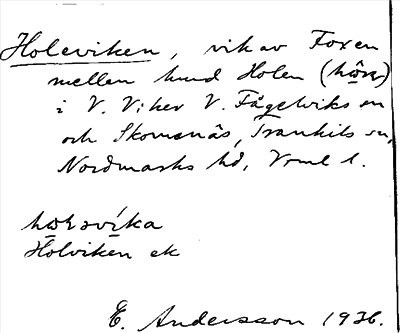 Holeviken, vik av Foxen
mellan hmd Holen
i V. Viker V. Fågelviks sn
och Skomenäs, Trankils sn,
Nordmarks hd, Vrml l.
Holviken ek
E. Andersson 1936.